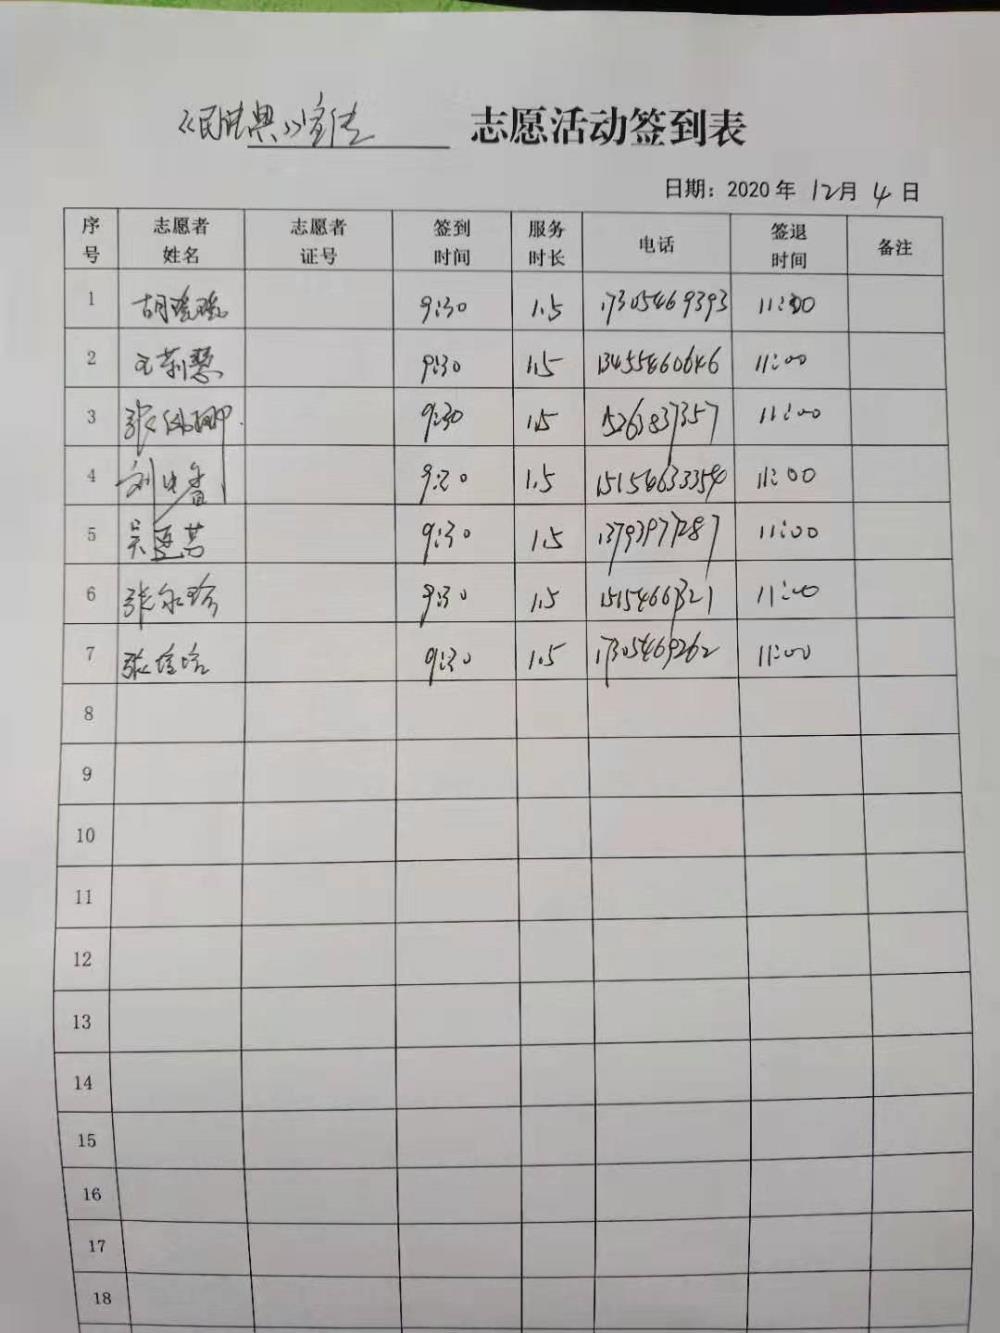 《民法典》宣传 志愿活动签到表
日期：2020年 12月 4日
序号 志愿者姓名 志愿者证号 签到时间 服务时长 电话 签退时间 备注
1 胡瑶瑶 9:30 1.5 17305469393 11:30
2 王莉慧 9:30 1.5 13455460646 11:00
3 9:30 1.5 11:00
4 9:20 1.5 15154633354 11:00
5 9:30 1.5 13793977287 11:00
6 9:30 1.5 11:00
7 9:30 1.5 17305469262 11:00
8
9
10
11
12
13
14
15
16
17
18